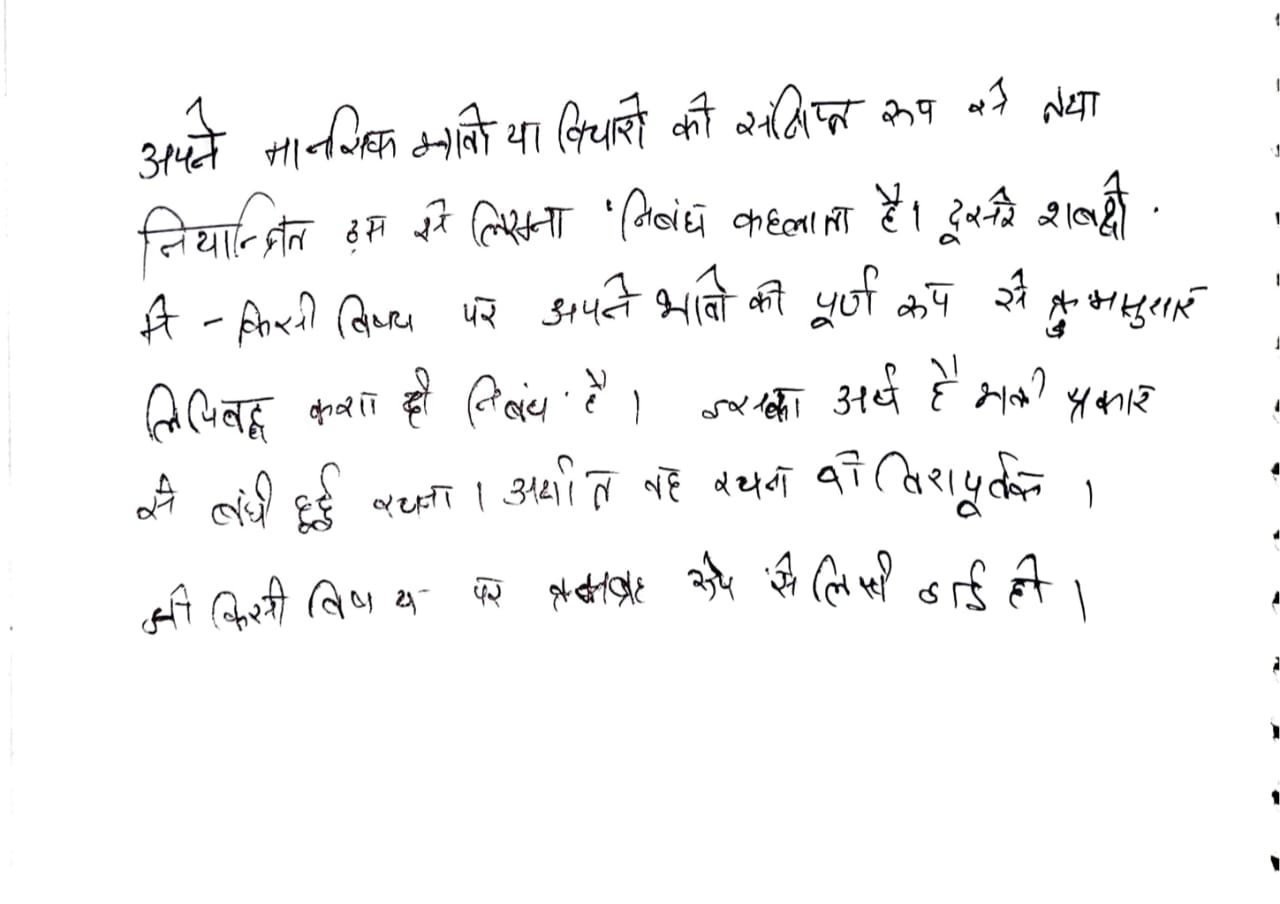 अपने मानसिक भावों या विचारों को संक्षिप्त रूप से तथा
नियान्त्रित ढंग से लिखना 'निबंध कहलाता है। दूसरे शब्दों
में - किसी विषय पर अपने भावो को पूर्ण रूप से
लिपिबद्ध करना ही निबंध है। इसका अर्थ है भली प्रकार
से बंधी हुई रचना। अर्थात वह रचना जो ।
जो किसी विषय पर रूप से लिखी गई हो।